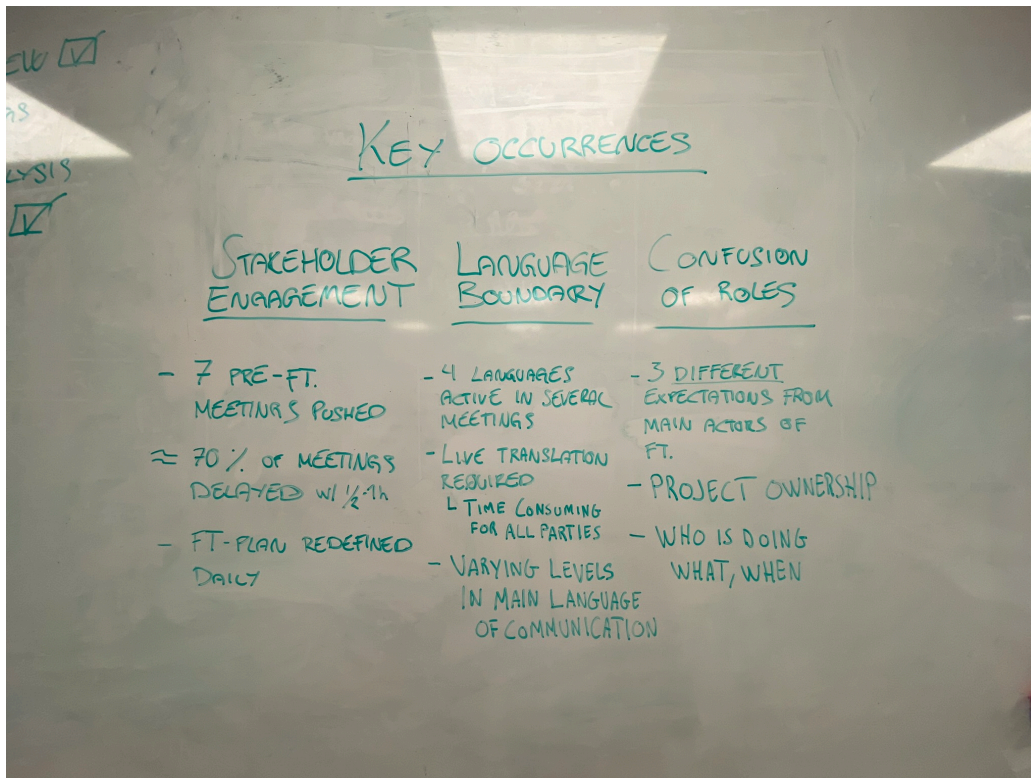 KEY OCCURRENCES
STAKEHOLDER
ENGAGEMENT
- 7 PRE-FT.
MEETINGS PUSHED
≈ 70% OF MEETINGS
DELAYED W/ ½-1h
- FT-PLAN REDEFINED
DAILY
LANGUAGE
BOUNDARY
- 4 LANGUAGES
ACTIVE IN SEVERAL
MEETINGS
- LIVE TRANSLATION
REQUIRED
└ TIME CONSUMING
FOR ALL PARTIES
- VARYING LEVELS
IN MAIN LANGUAGE
OF COMMUNICATION
CONFUSION
OF ROLES
- 3 DIFFERENT
EXPECTATIONS FROM
MAIN ACTORS OF
FT.
- PROJECT OWNERSHIP
- WHO IS DOING
WHAT, WHEN
LYSIS